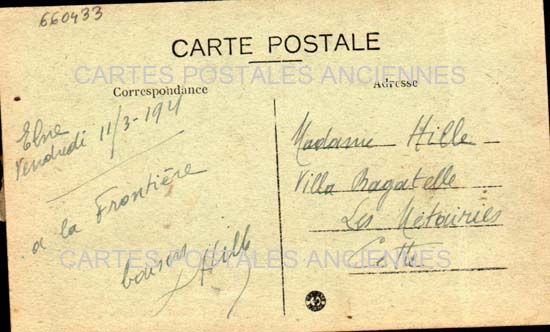 660433
CARTE POSTALE
CARTES POSTALES ANCIENNES
Correspondance
Adresse
Elne
Vendredi 11/3-1921
a la Frontière
baisers
Hille
Madame Hille
Villa Bagatelle
Les Métairies
Cette
CARTES POSTALES ANCIENNES